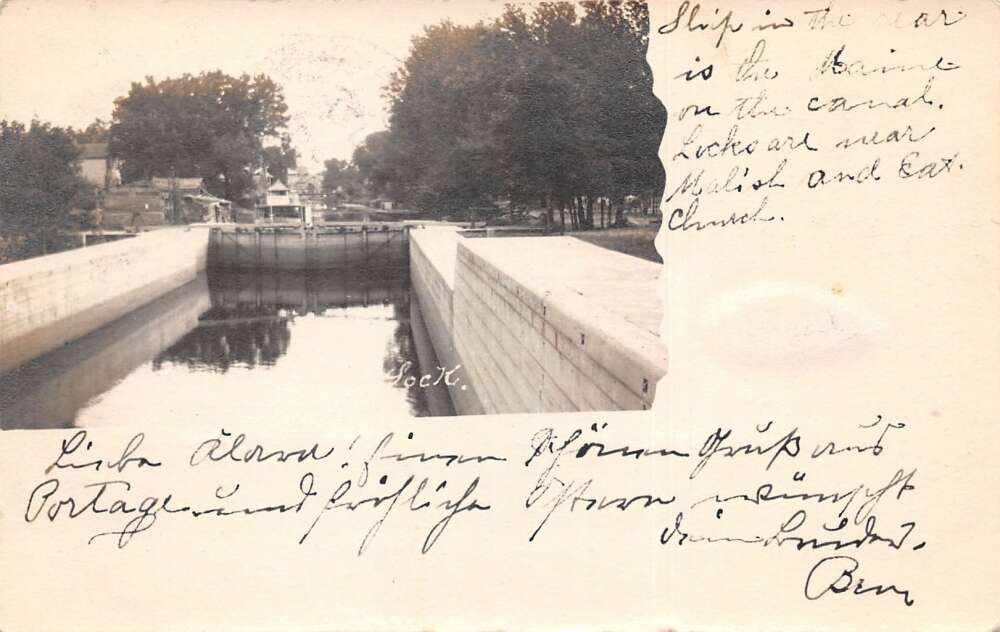 Ship in the rear
is the Maine
on the canal.
Locks are near
Malish and Cat.
Church.
Lock.
Liebe Klara! Einen schönen Gruß aus
Portage und fröhliche Ostern wünscht
dein Bruder.
Ben